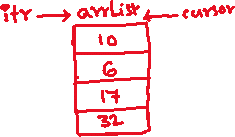 itr → arrList ← cursor
10
6
17
32